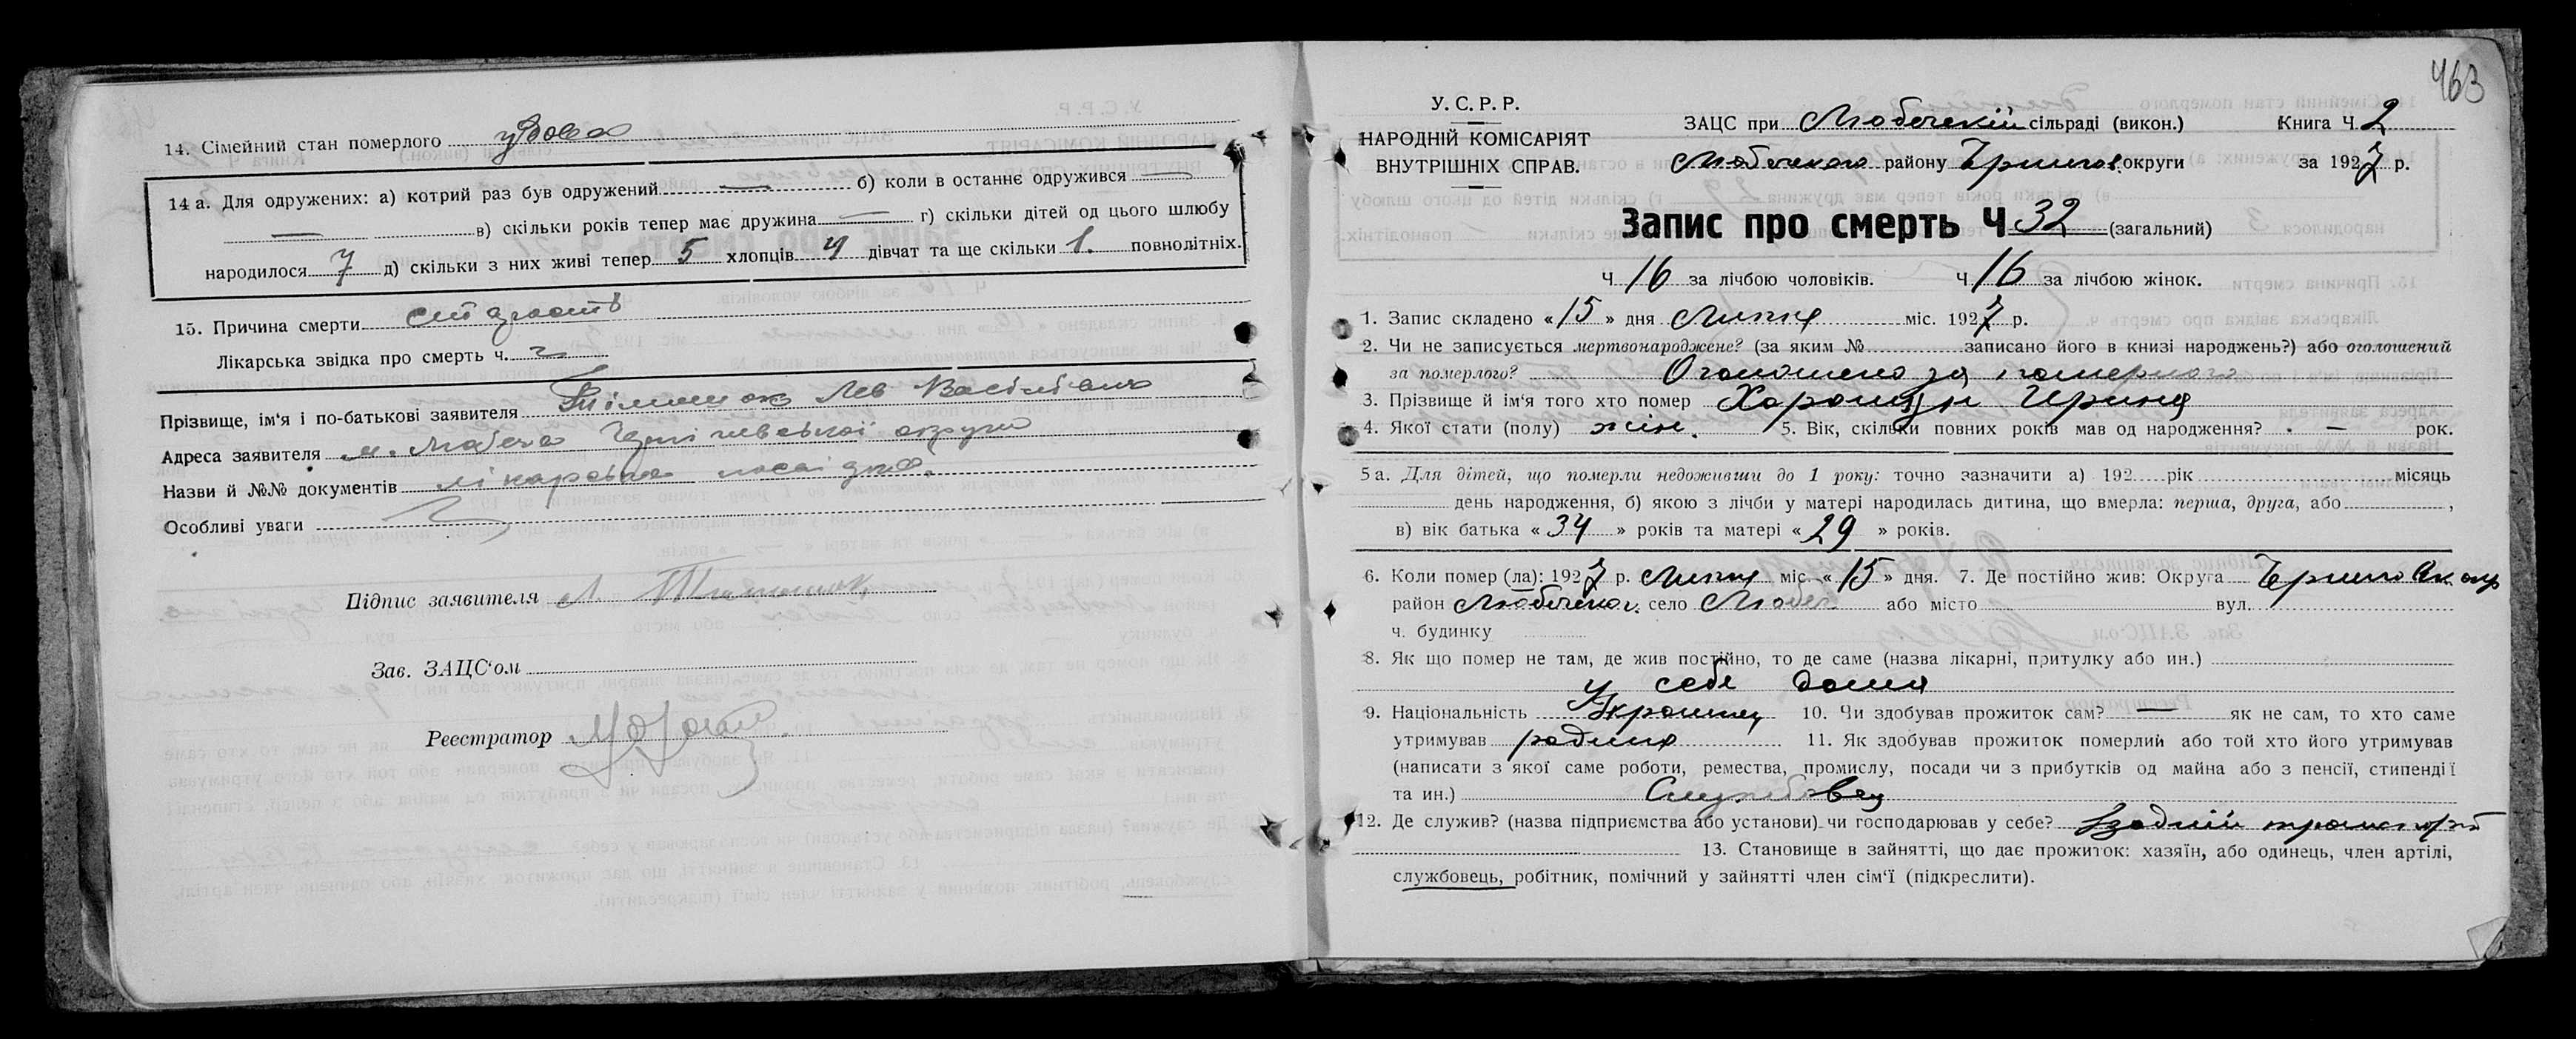 14. Сімейний стан померлого удова
14 а. Для одружених: а) котрий раз був одружений — б) коли в останнє одружився —
— в) скільки років тепер має дружина — г) скільки дітей од цього шлюбу
народилося 7 д) скільки з них живі тепер 5 хлопців 4 дівчат та ще скільки 1. повнолітніх.
15. Причина смерти старость
Лікарська звідка про смерть ч.
Прізвище, ім'я і по-батькові заявителя Лев
Адреса заявителя м. Любеч округи
Назви й №№ документів лікарська посвідка.
Особливі уваги
Підпис заявителя Л.
Зав. ЗАЦС'ом
Реєстратор
463
У. С. Р. Р.
НАРОДНІЙ КОМІСАРІЯТ
ВНУТРІШНІХ СПРАВ.
ЗАЦС при Любечскій сільраді (викон.) Книга Ч. 2
Любечского району Чернигов. округи за 1927 р.
Запис про смерть Ч 32 (загальний)
Ч 16 за лічбою чоловіків. Ч 16 за лічбою жінок.
1. Запис складено « 15 » дня Липня міс. 1927 р.
2. Чи не записується мертвонароджене? (за яким № записано його в книзі народжень?) або оголошений
за померлого? Оголошено за померлого
3. Прізвище й ім'я того хто помер Ирина
4. Якої стати (полу) жін. 5. Вік, скільки повних років мав од народження? — рок.
5 а. Для дітей, що померли недоживши до 1 року: точно зазначити а) 192 рік місяць
день народження, б) якою з лічби у матері народилась дитина, що вмерла: перша, друга, або ,
в) вік батька « 34 » років та матері « 29 » років.
6. Коли помер (ла): 1927 р. Липня міс. « 15 » дня. 7. Де постійно жив: Округа
район Любечско. село Любеч або місто вул.
ч. будинку
8. Як що помер не там, де жив постійно, то де саме (назва лікарні, притулку або ин.)
у себе дома
9. Національність 10. Чи здобував прожиток сам? — як не сам, то хто саме
утримував родина 11. Як здобував прожиток померлий або той хто його утримував
(написати з якої саме роботи, ремества, промислу, посади чи з прибутків од майна або з пенсії, стипендії
та ин.) Службовец
12. Де служив? (назва підприємства або установи) чи господарював у себе? транспорт
13. Становище в зайнятті, що дає прожиток: хазяїн, або одинець, член артілі,
службовець, робітник, помічний у зайнятті член сім'ї (підкреслити).